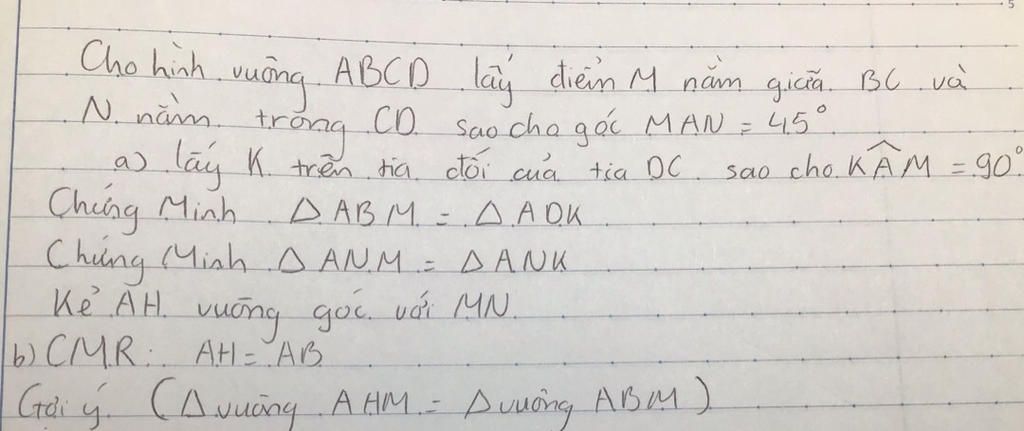 5
Cho hình vuông ABCD lấy điểm M nằm giữa BC và
N nằm trong CD sao cho góc MAN = 45°
a) lấy K trên tia đối của tia DC sao cho KÂM = 90°.
Chứng Minh ΔABM = ΔADK
Chứng Minh ΔANM = ΔANK
Kẻ AH vuông góc với MN.
b) CMR: AH = AB
Gợi ý (Δ vuông AHM = Δ vuông ABM)